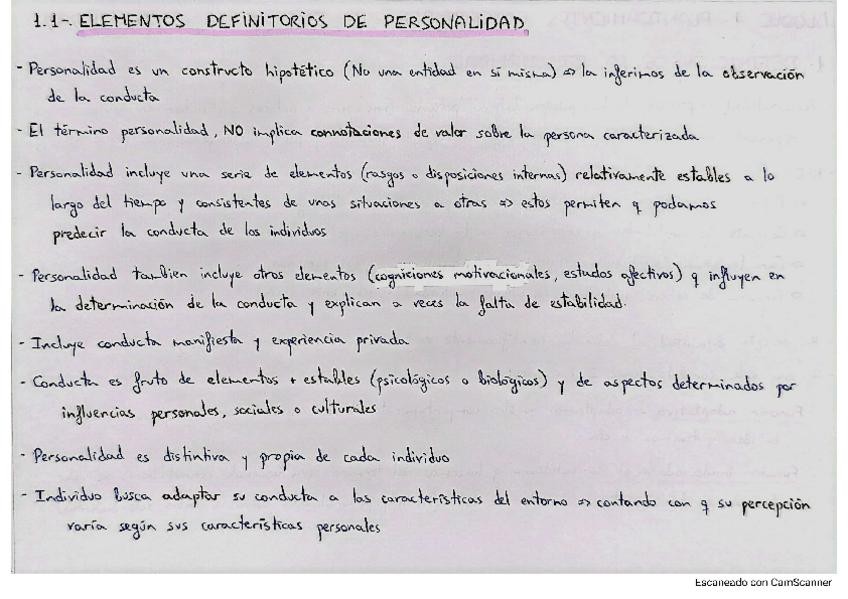 1.1-. ELEMENTOS DEFINITORIOS DE PERSONALIDAD
- Personalidad es un constructo hipotético (No una entidad en sí misma) => la inferimos de la observación
de la conducta
- El término personalidad, NO implica connotaciones de valor sobre la persona caracterizada
- Personalidad incluye una serie de elementos (rasgos o disposiciones internas) relativamente estables a lo
largo del tiempo y consistentes de unas situaciones a otras => estos permiten q podamos
predecir la conducta de los individuos
- Personalidad tambien incluye otros elementos (cogniciones motivacionales, estados afectivos) q influyen en
la determinación de la conducta y explican a veces la falta de estabilidad.
- Incluye conducta manifiesta y experiencia privada
- Conducta es fruto de elementos + estables (psicológicos o biológicos) y de aspectos determinados por
influencias personales, sociales o culturales
- Personalidad es distintiva y propia de cada individuo
- Individuo busca adaptar su conducta a las características del entorno => contando con q su percepción
varía según sus características personales
Escaneado con CamScanner